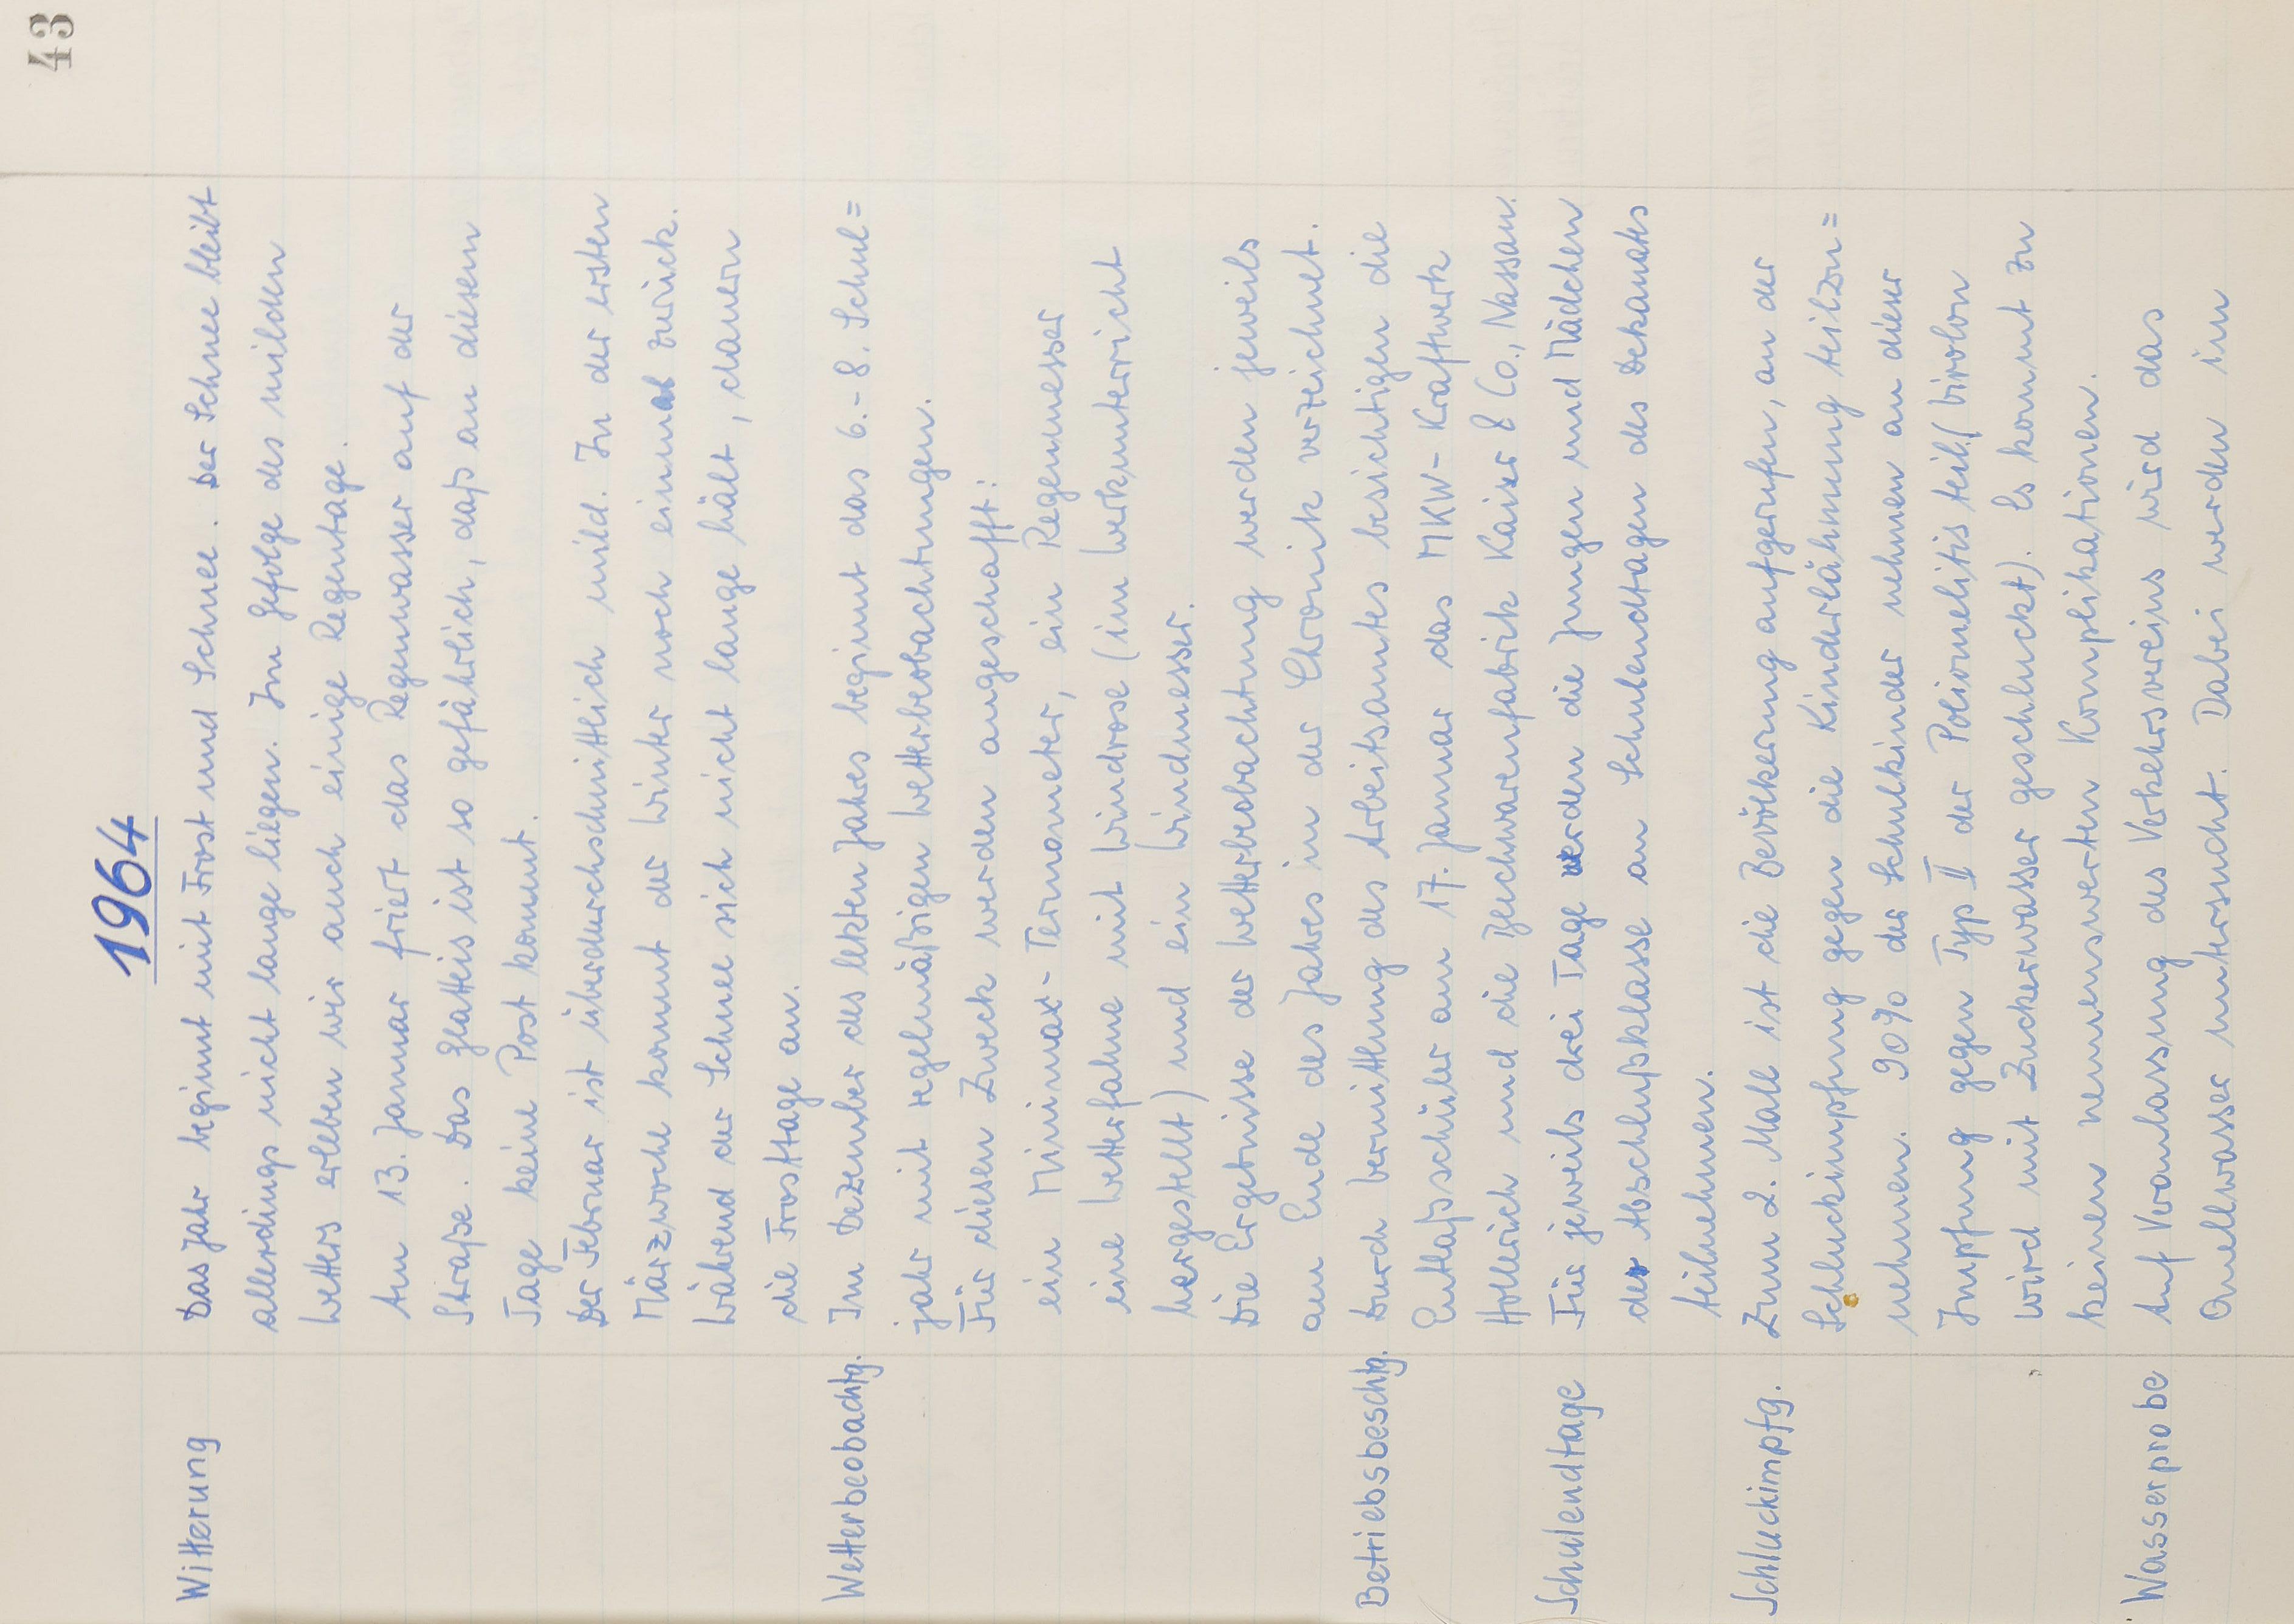 43
1964
Witterung Das Jahr beginnt mit Frost und Schnee. Der Schnee bleibt
allerdings nicht lange liegen. Im Gefolge des milden
Wetters erleben wir auch einige Regentage.
Am 13. Januar friert das Regenwasser auf der
Straße. Das Glatteis ist so gefährlich, daß an diesem
Tage keine Post kommt.
Der Februar ist überdurchschnittlich mild. In der ersten
Märzwoche kommt der Winter noch einmal zurück.
Während der Schnee sich nicht lange hält, dauern
die Frosttage an.
Wetterbeobachtg. Im Dezember des letzten Jahres beginnt das 6.-8. Schul=
jahr mit regelmäßigen Wetterbeobachtungen.
Für diesen Zweck werden angeschafft:
ein Minimax-Termometer, ein Regenmesser
eine Wetterfahne mit Windrose (im Werkunterricht
hergestellt) und ein Windmesser.
Die Ergebnisse der Wetterbeobachtung werden jeweils
am Ende des Jahres in der Chronik verzeichnet.
Betriebsbeschtg. Durch Vermittlung des Arbeitsamtes besichtigen die
Entlaßschüler am 17. Januar das MKW-Kraftwerk
Hollerich und die Blechwarenfabrik Kaiser & Co., Nassau.
Schulendtage Für jeweils drei Tage werden die Jungen und Mädchen
der Abschlußklasse an Schulendtagen des Dekanates
teilnehmen.
Schluckimpfg. Zum 2. Male ist die Bevölkerung aufgerufen, an der
Schluckimpfung gegen die Kinderlähmung teilzu=
nehmen. 90% der Schulkinder nehmen an dieser
Impfung gegen Typ II der Poliomelitis teil (Virolon
wird mit Zuckerwasser geschluckt). Es kommt zu
keinen nennenswerten Komplikationen.
Wasserprobe Auf Veranlassung des Verkehrsvereins wird das
Quellwasser untersucht. Dabei werden im